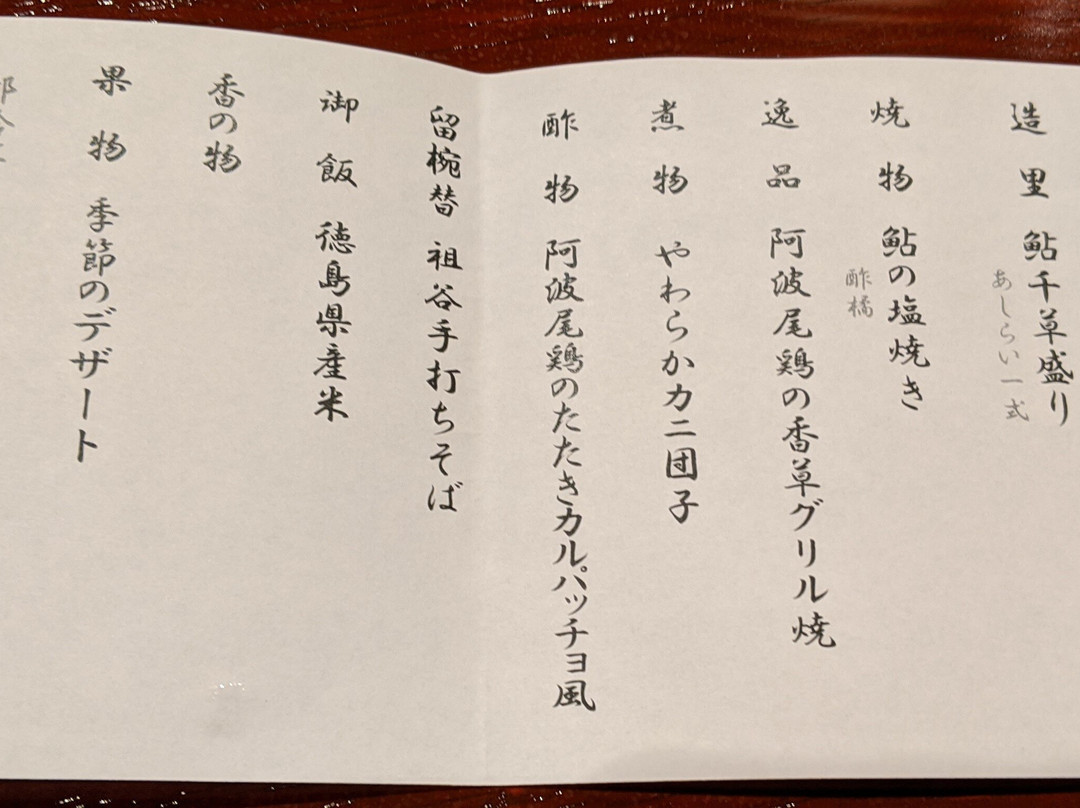 造里 鮎千草盛り
あしらい一式
焼物 鮎の塩焼き
酢橘
逸品 阿波尾鶏の香草グリル焼
煮物 やわらかカニ団子
酢物 阿波尾鶏のたたきカルパッチョ風
留椀替 祖谷手打ちそば
御飯 徳島県産米
香の物
果物 季節のデザート